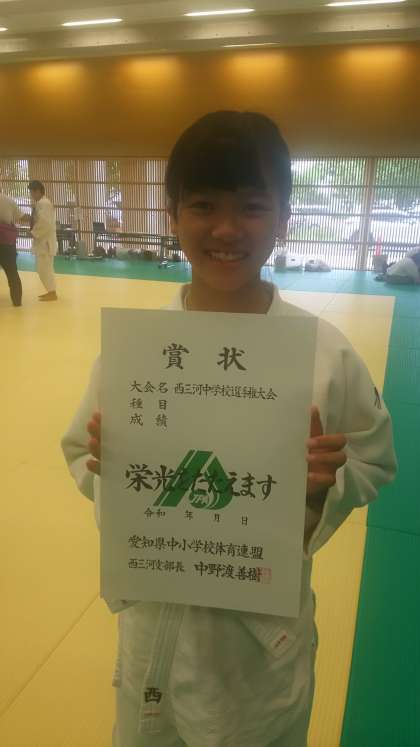 賞状
大会名 西三河中学校選手権大会
種目
成績
栄光をたたえます
令和 年 月 日
愛知県中小学校体育連盟
西三河支部長 中野渡善樹
西